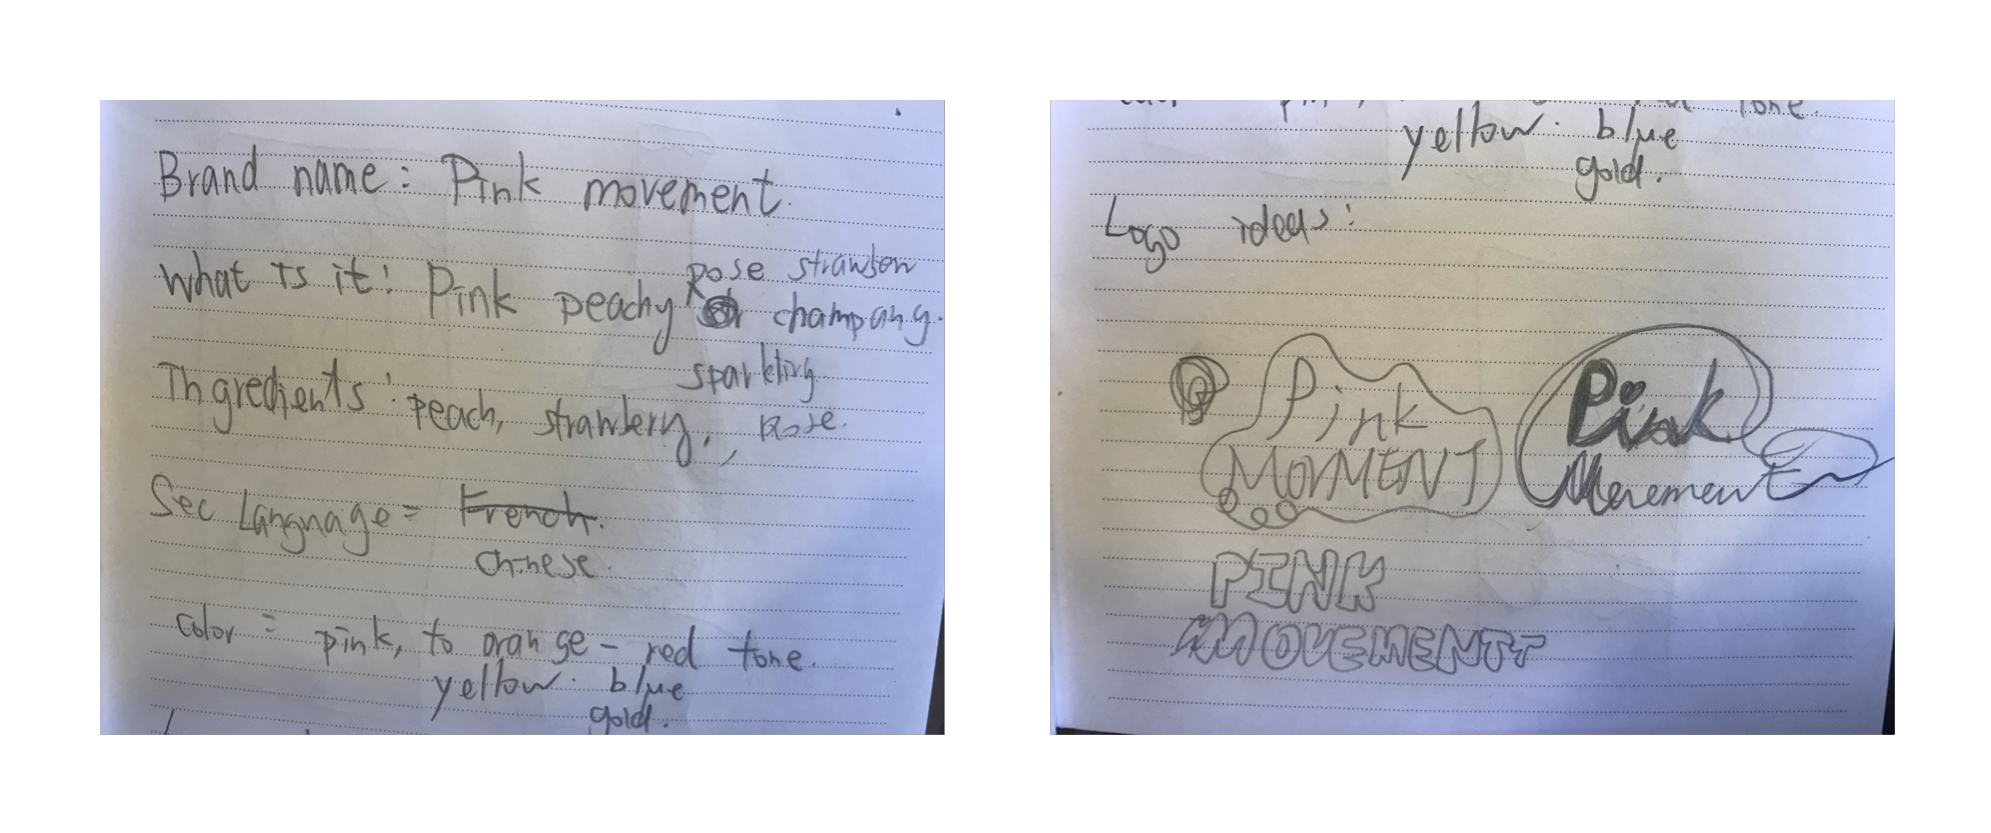 Brand name: Pink movement.
What Is it: Pink peachy Rose strawberr
champang.
sparkling
Ingredients: peach, strawbery, Rose.
Sec Language = French.
Chinese.
color = pink, to orange - red tone.
yellow. blue
gold.
tone.
yellow. blue
gold.
Logo ideas:
Pink
MOVMENT
Pink
Movement
PINK
MOVEMENT